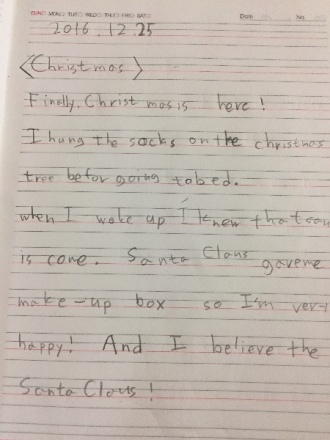 SUN○ MON○ TUE○ WED○ THU○ FRI○ SAT○ Date No.
2016.12.25
<Christmas>
Finally, Christmas is here!
I hung the socks on the christmas
tree befor going to bed.
when I woke up I knew that san
is come. Santa Claus gave me
make-up box so I'm very
happy! And I believe the
Santa Claus!